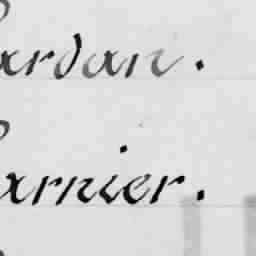 ardan.
arnier.